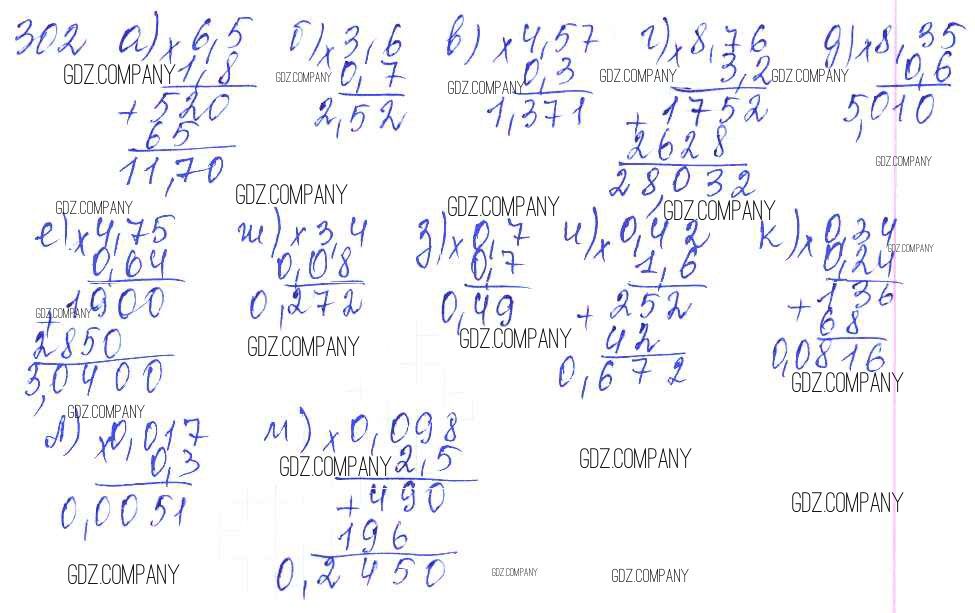 302 а) × 6,5 б) × 3,6 в) × 4,57 г) × 8,76 д) × 8,35
GDZ.COMPANY 1,8 GDZ.COMPANY 0,7 GDZ.COMPANY 0,3 GDZ.COMPANY 3,2 GDZ.COMPANY 0,6
+ 520 2,52 1,371 + 1752 5,010
65 2628
11,70 28,032
GDZ.COMPANY GDZ.COMPANY
GDZ.COMPANY GDZ.COMPANY GDZ.COMPANY
е) × 4,75 ж) × 3,4 з) × 0,7 и) × 0,42 к) × 0,34
0,64 0,08 0,7 1,6 0,24 GDZ.COMPANY
GDZ.COMPANY + 1900 0,272 0,49 + 252 + 136
2850 GDZ.COMPANY GDZ.COMPANY 42 68
3,0400 0,672 0,0816
GDZ.COMPANY GDZ.COMPANY
л) × 0,017 м) × 0,098
0,3 GDZ.COMPANY 2,5 GDZ.COMPANY
0,0051 + 490 GDZ.COMPANY
196
GDZ.COMPANY 0,2450 GDZ.COMPANY GDZ.COMPANY